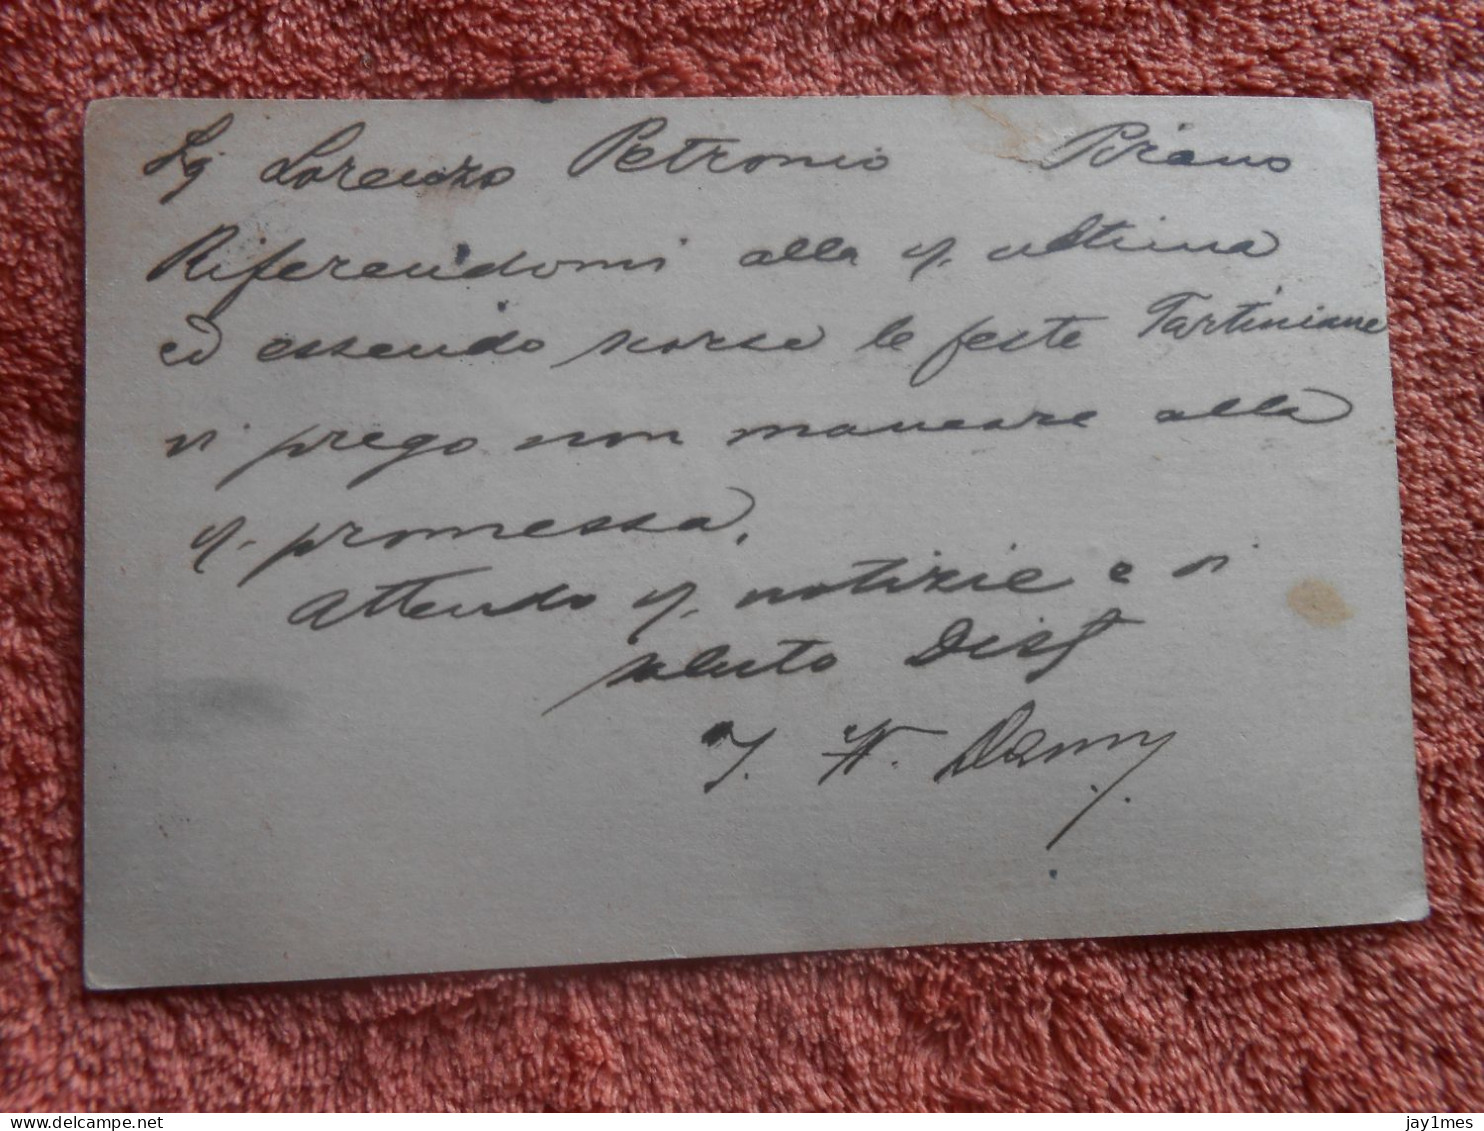 Sg Lorenzo Petronio Pirano
Riferendomi alla v. ultima
ed essendo scorse le feste Tartiniane
vi prego non mancare alla
v. promessa.
Attendo v. notizie e vi
saluto Dist
delcampe.net
jay1mes